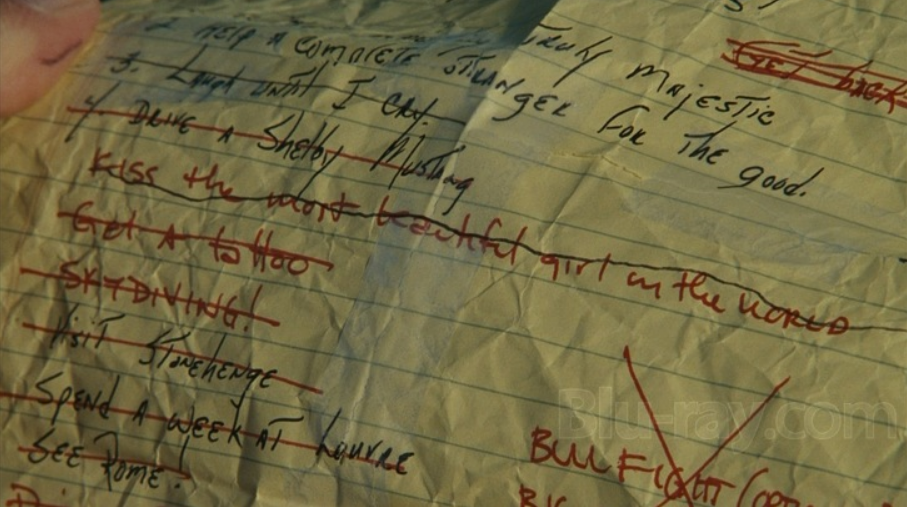 TRULY MAJESTIC
2. HELP A COMPLETE STRANGER FOR THE good.
3. Laugh until I cry.
4. DRIVE A Shelby Mustang
Kiss the most beautiful girl in the WORLD
Get A tattoo
SKYDIVING!
Visit Stonehenge
Spend A week AT Louvre
See Rome.
GET back
BULL FIGHT
Blu-ray.com